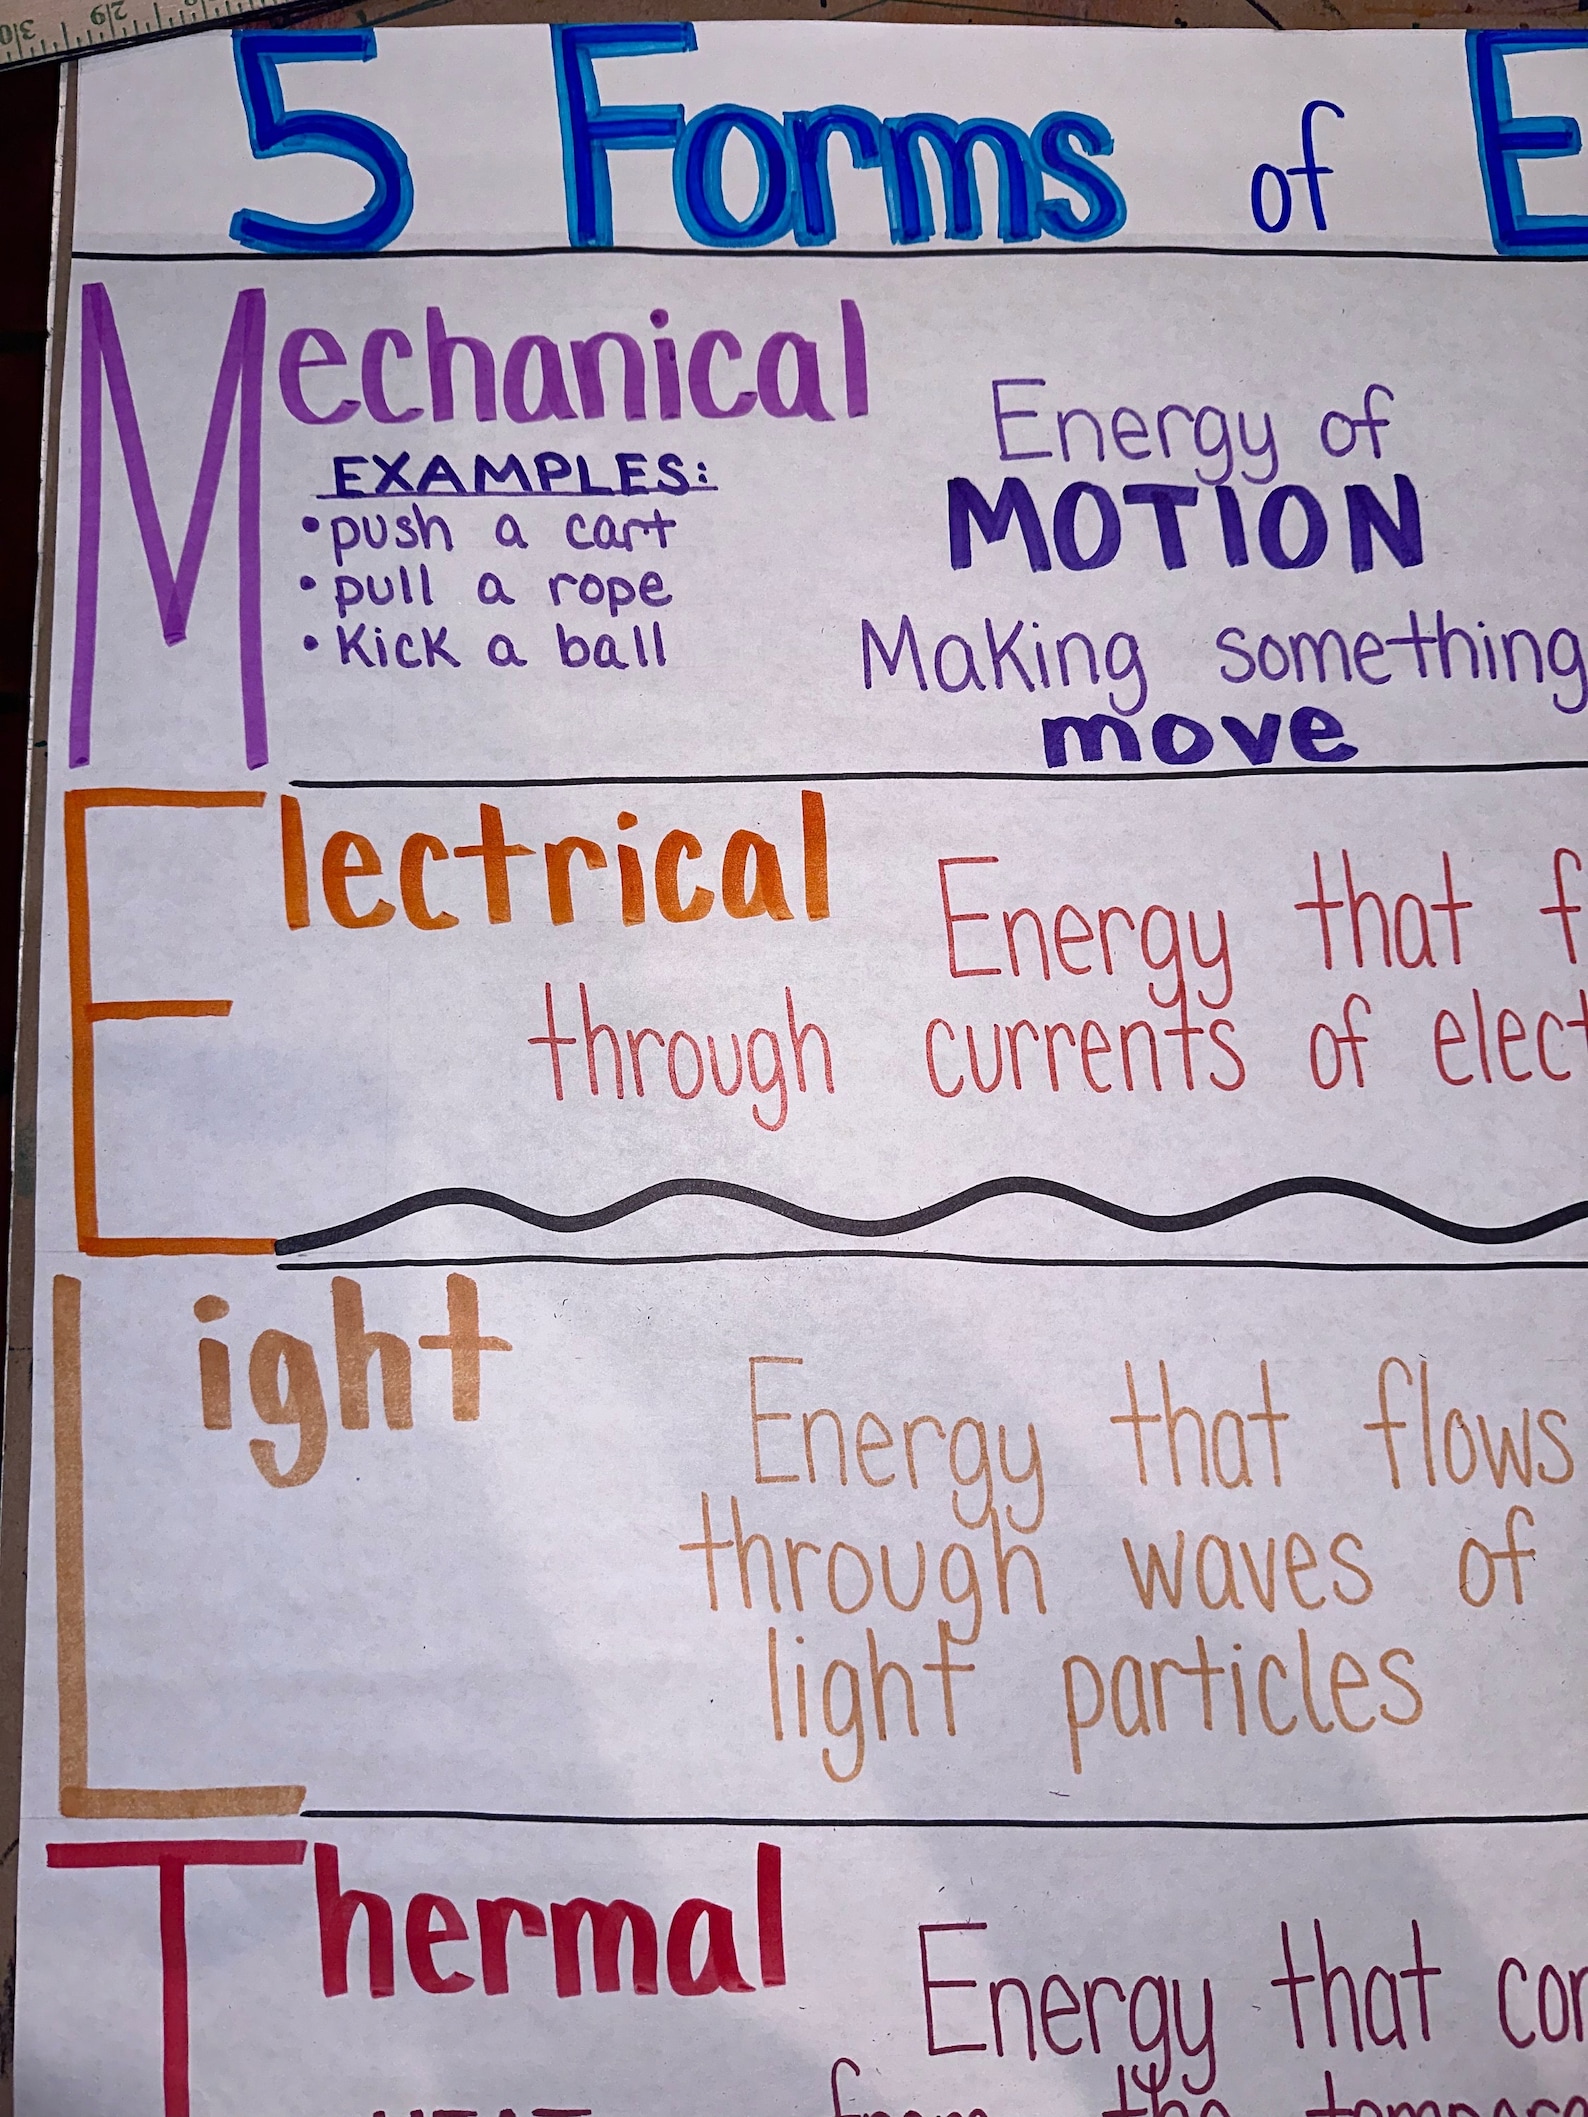 5 Forms of
Mechanical
EXAMPLES:
• push a cart
• pull a rope
• Kick a ball
Energy of
MOTION
Making something
move
Electrical
Energy that
through currents of
Light
Energy that flows
through waves of
light particles
Thermal
Energy that
from the